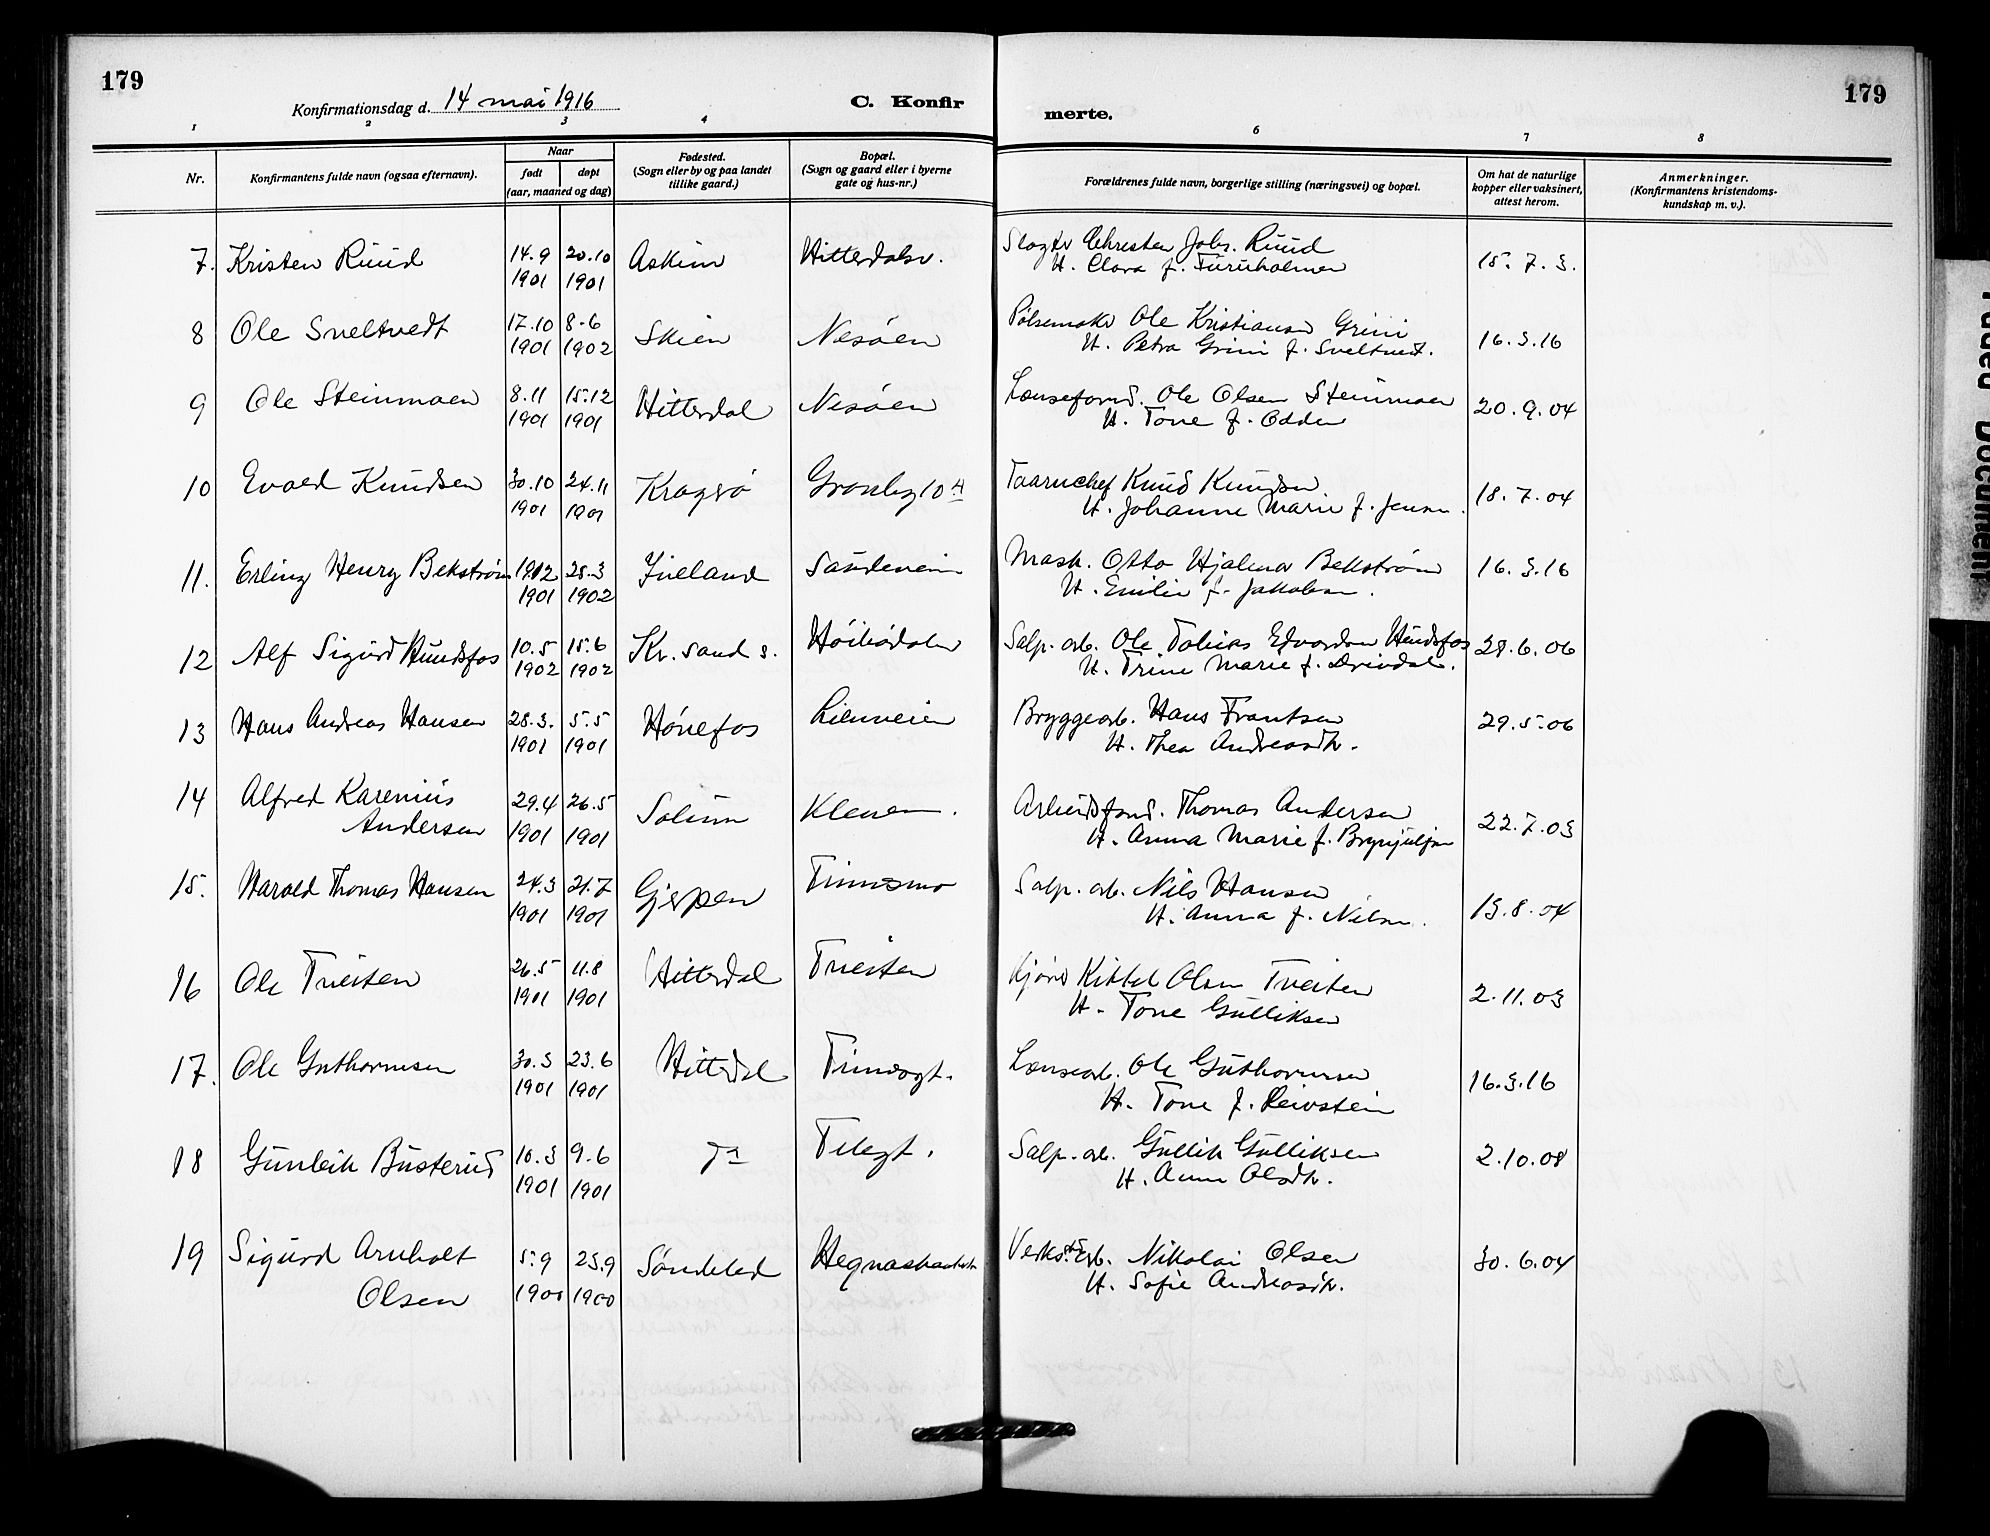 179
Konfirmationsdag d. 14 mai 1916
C. Konfir
merte.
179
1 2 3 4 6 7 8
Nr.
Konfirmantens fulde navn (ogsaa efternavn).
Naar
født døpt
(aar, maaned og dag)
Fødested.
(Sogn eller by og paa landet
tillike gaard.)
Bopæl.
(Sogn og gaard eller i byerne
gate og hus-nr.)
Forældrenes fulde navn, borgerlige stilling (næringsvei) og bopæl.
Om hat de naturlige
kopper eller vaksinert,
attest herom.
Anmerkninger.
(Konfirmantens kristendoms-
kundskap m. v.).
7. Kristen Ruud 14.9 1901 20.10 1901 Askim Hitterdalsv. Slagter Christen Johs. Ruud 15.7.3.
H. Clara f. Furuholmen
8 Ole Sneltvedt 17.10 1901 8.6 1902 Skien Nesøen Pølsemaker Ole Kristiansen Grini 16.3.16
H. Petra Grini f. Sneltvedt.
9 Ole Steinmoen 8.11 1901 15.12 1901 Hitterdal Nesøen Lenseform. Ole Olsen Steinmoen 20.9.04
H. Tone f. Odden
10 Evald Knudsen 30.10 1901 24.11 1901 Kragerø Grønbyg 10 A Taarnchef Knud Knudsen 18.7.04
H. Johanne Marie f. Jensen.
11. Erling Henry Bekstrøm 19.12 1901 28.3 1902 Iveland Saudeveien Mask. Otto Hjalmar Bekstrøm 16.3.16
H. Emilie f. Jakobsen.
12 Alf Sigurd Hundsfos 10.5 1902 15.6 1902 Kr. sand s. Høibødalen Salp. arb. Ole Tobias Edvardsen Hundsfos 28.6.06
H. Trine Marie f. Drivdal.
13 Hans Andreas Hansen 28.3. 1901 5.5 1901 Hønefos Lienveien Bryggearb. Hans Frantsen 29.5.06
H. Thea Andreasdtr.
14 Alfred Karenius 29.4 1901 26.5 1901 Solum Kleven. Arbeidsform. Thomas Andersen 22.7.03
Andersen H. Anna Marie f. Brynjulfsen
15. Harald Thomas Hansen 24.3 1901 21.7 1901 Gjerpen Tinnesmo Salp. arb. Nils Hansen 13.8.04
H. Anna f. Nilsen.
16 Ole Tveiten 26.5 1901 11.8 1901 Hitterdal Tveiten Kjører Kittel Olsen Tveiten 2.11.03
H. Tone Gulliksen
17. Ole Guthormsen 30.3 1901 23.6 1901 Hitterdal Tinnegt. Lensearb. Ole Guthormsen 16.3.16
H. Tone f. Leivstein
18 Gunleik Busterud 10.3 1901 9.6 1901 do Telegt. Salp. arb. Gullik Gulliksen 2.10.08
H. Anne Olsdtr.
19 Sigurd Arnholt 5.9 1900 23.9 1900 Søndeled Verkst.arb. Nikolai Olsen 30.6.04
Olsen H. Sofie Andreasdtr.